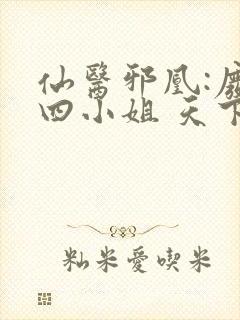 仙醫邪凰:廢
四小姐 天下
籼米愛喫米